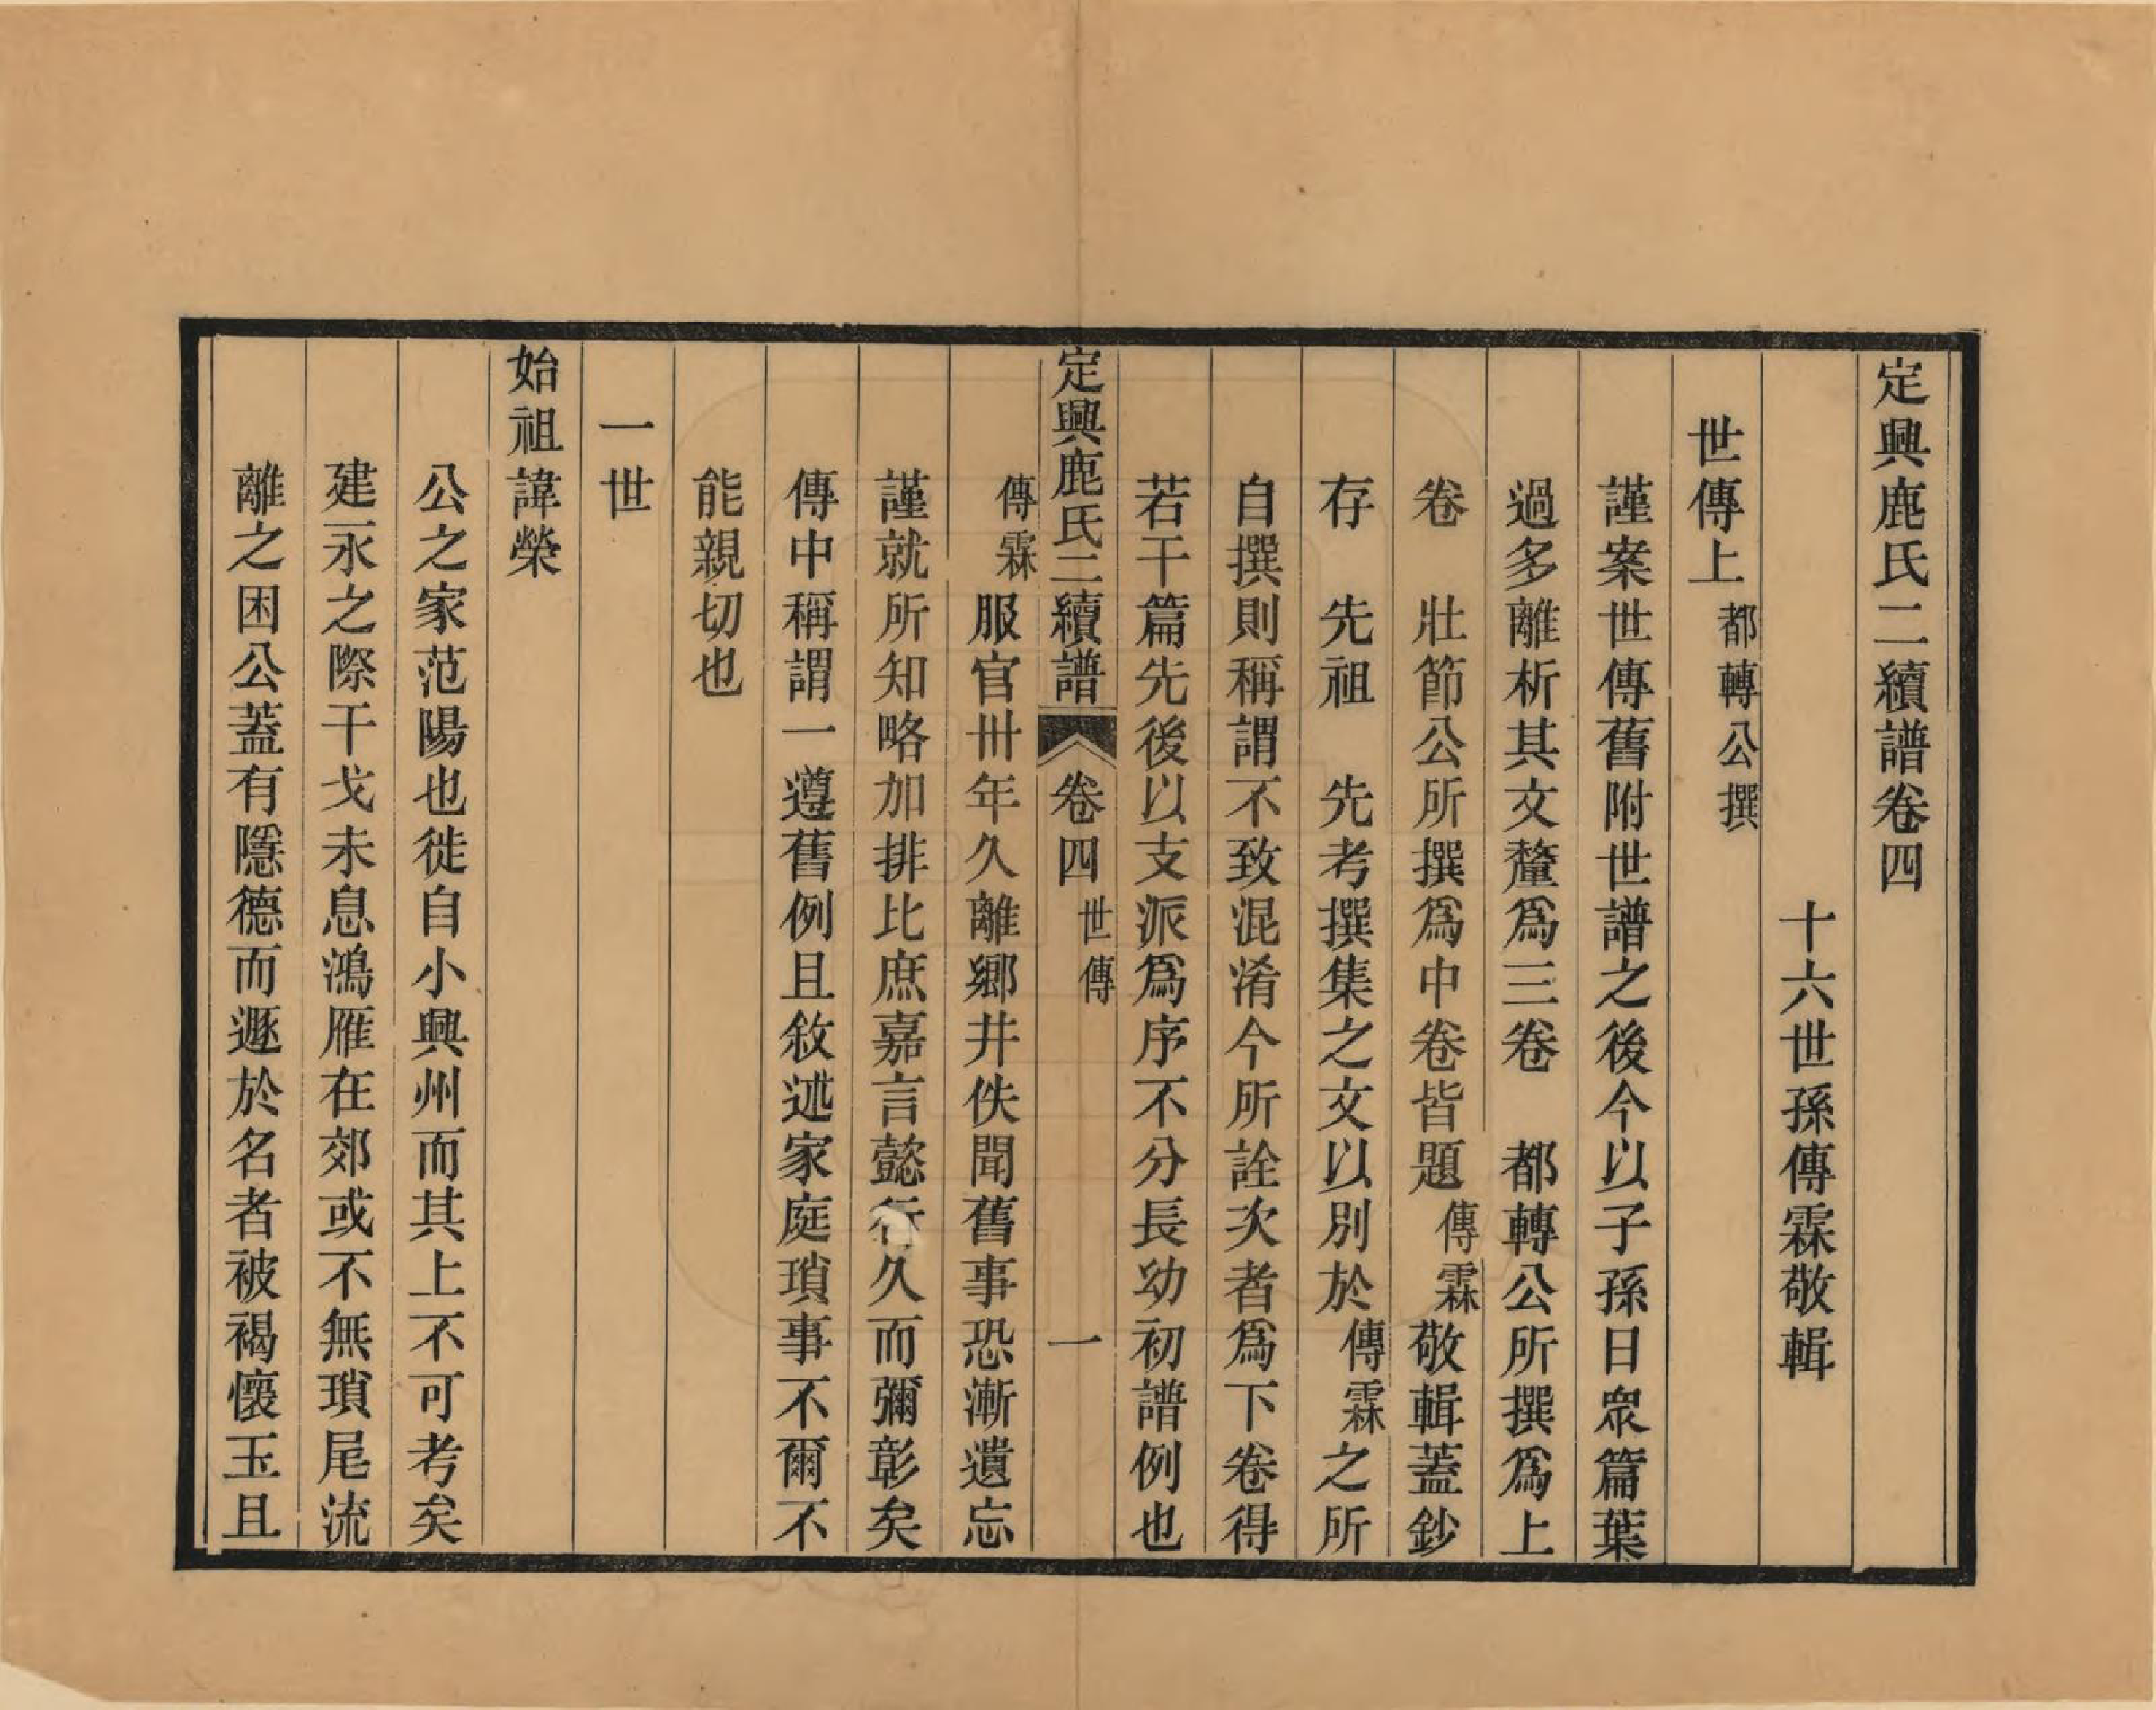 定興鹿氏二續譜卷四
十六世孫傳霖敬輯
世傳上 都轉公撰
謹案世傳舊附世譜之後今以子孫日衆篇葉
過多離析其文釐爲三卷 都轉公所撰爲上
卷 壯節公所撰爲中卷皆題傳霖敬輯蓋鈔
存 先祖 先考撰集之文以別於傳霖之所
自撰則稱謂不致混淆今所詮次者爲下卷得
若干篇先後以支派爲序不分長幼初譜例也
定興鹿氏二續譜 卷四 世傳 一
傳霖服官卅年久離鄉井佚聞舊事恐漸遺忘
謹就所知略加排比庶嘉言懿行久而彌彰矣
傳中稱謂一遵舊例且敘述家庭瑣事不爾不
能親切也
一世
始祖諱榮
公之家范陽也徙自小興州而其上不可考矣
建永之際干戈未息鴻雁在郊或不無瑣尾流
離之困公蓋有隱德而遯於名者被褐懷玉且